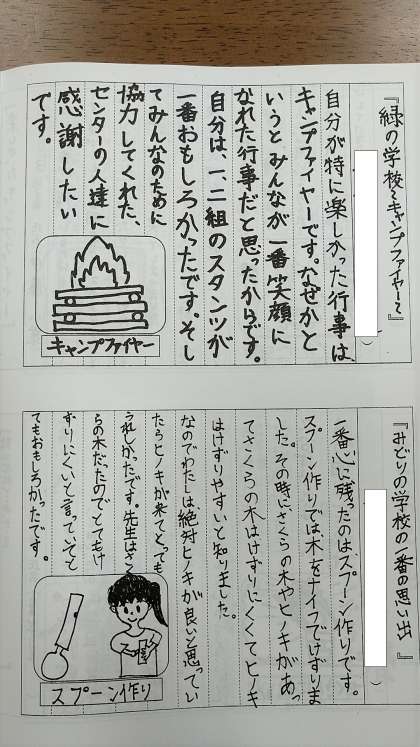 『緑の学校〜キャンプファイヤー〜』
自分が特に楽しかった行事は、
キャンプファイヤーです。なぜかと
いうとみんなが一番笑顔に
なれた行事だと思ったからです。
自分は、一、二組のスタンツが
一番おもしろかったです。そし
てみんなのために
協力してくれた、
センターの人達に
感謝したい
です。
キャンプファイヤー
『みどりの学校の一番の思い出』
一番心に残ったのは、スプーン作りです。
スプーン作りでは、木をナイフでけずりま
した。その時にさくらの木やヒノキがあっ
てさくらの木はけずりにくくてヒノキ
はけずりやすいと知りました。
なのでわたしは、絶対ヒノキが良いと思ってい
たらヒノキが来てとっても
うれしかったです。先生はさく
らの木だったのでとてもけ
ずりにくいと言っていてと
てもおもしろかったです。
スプーン作り